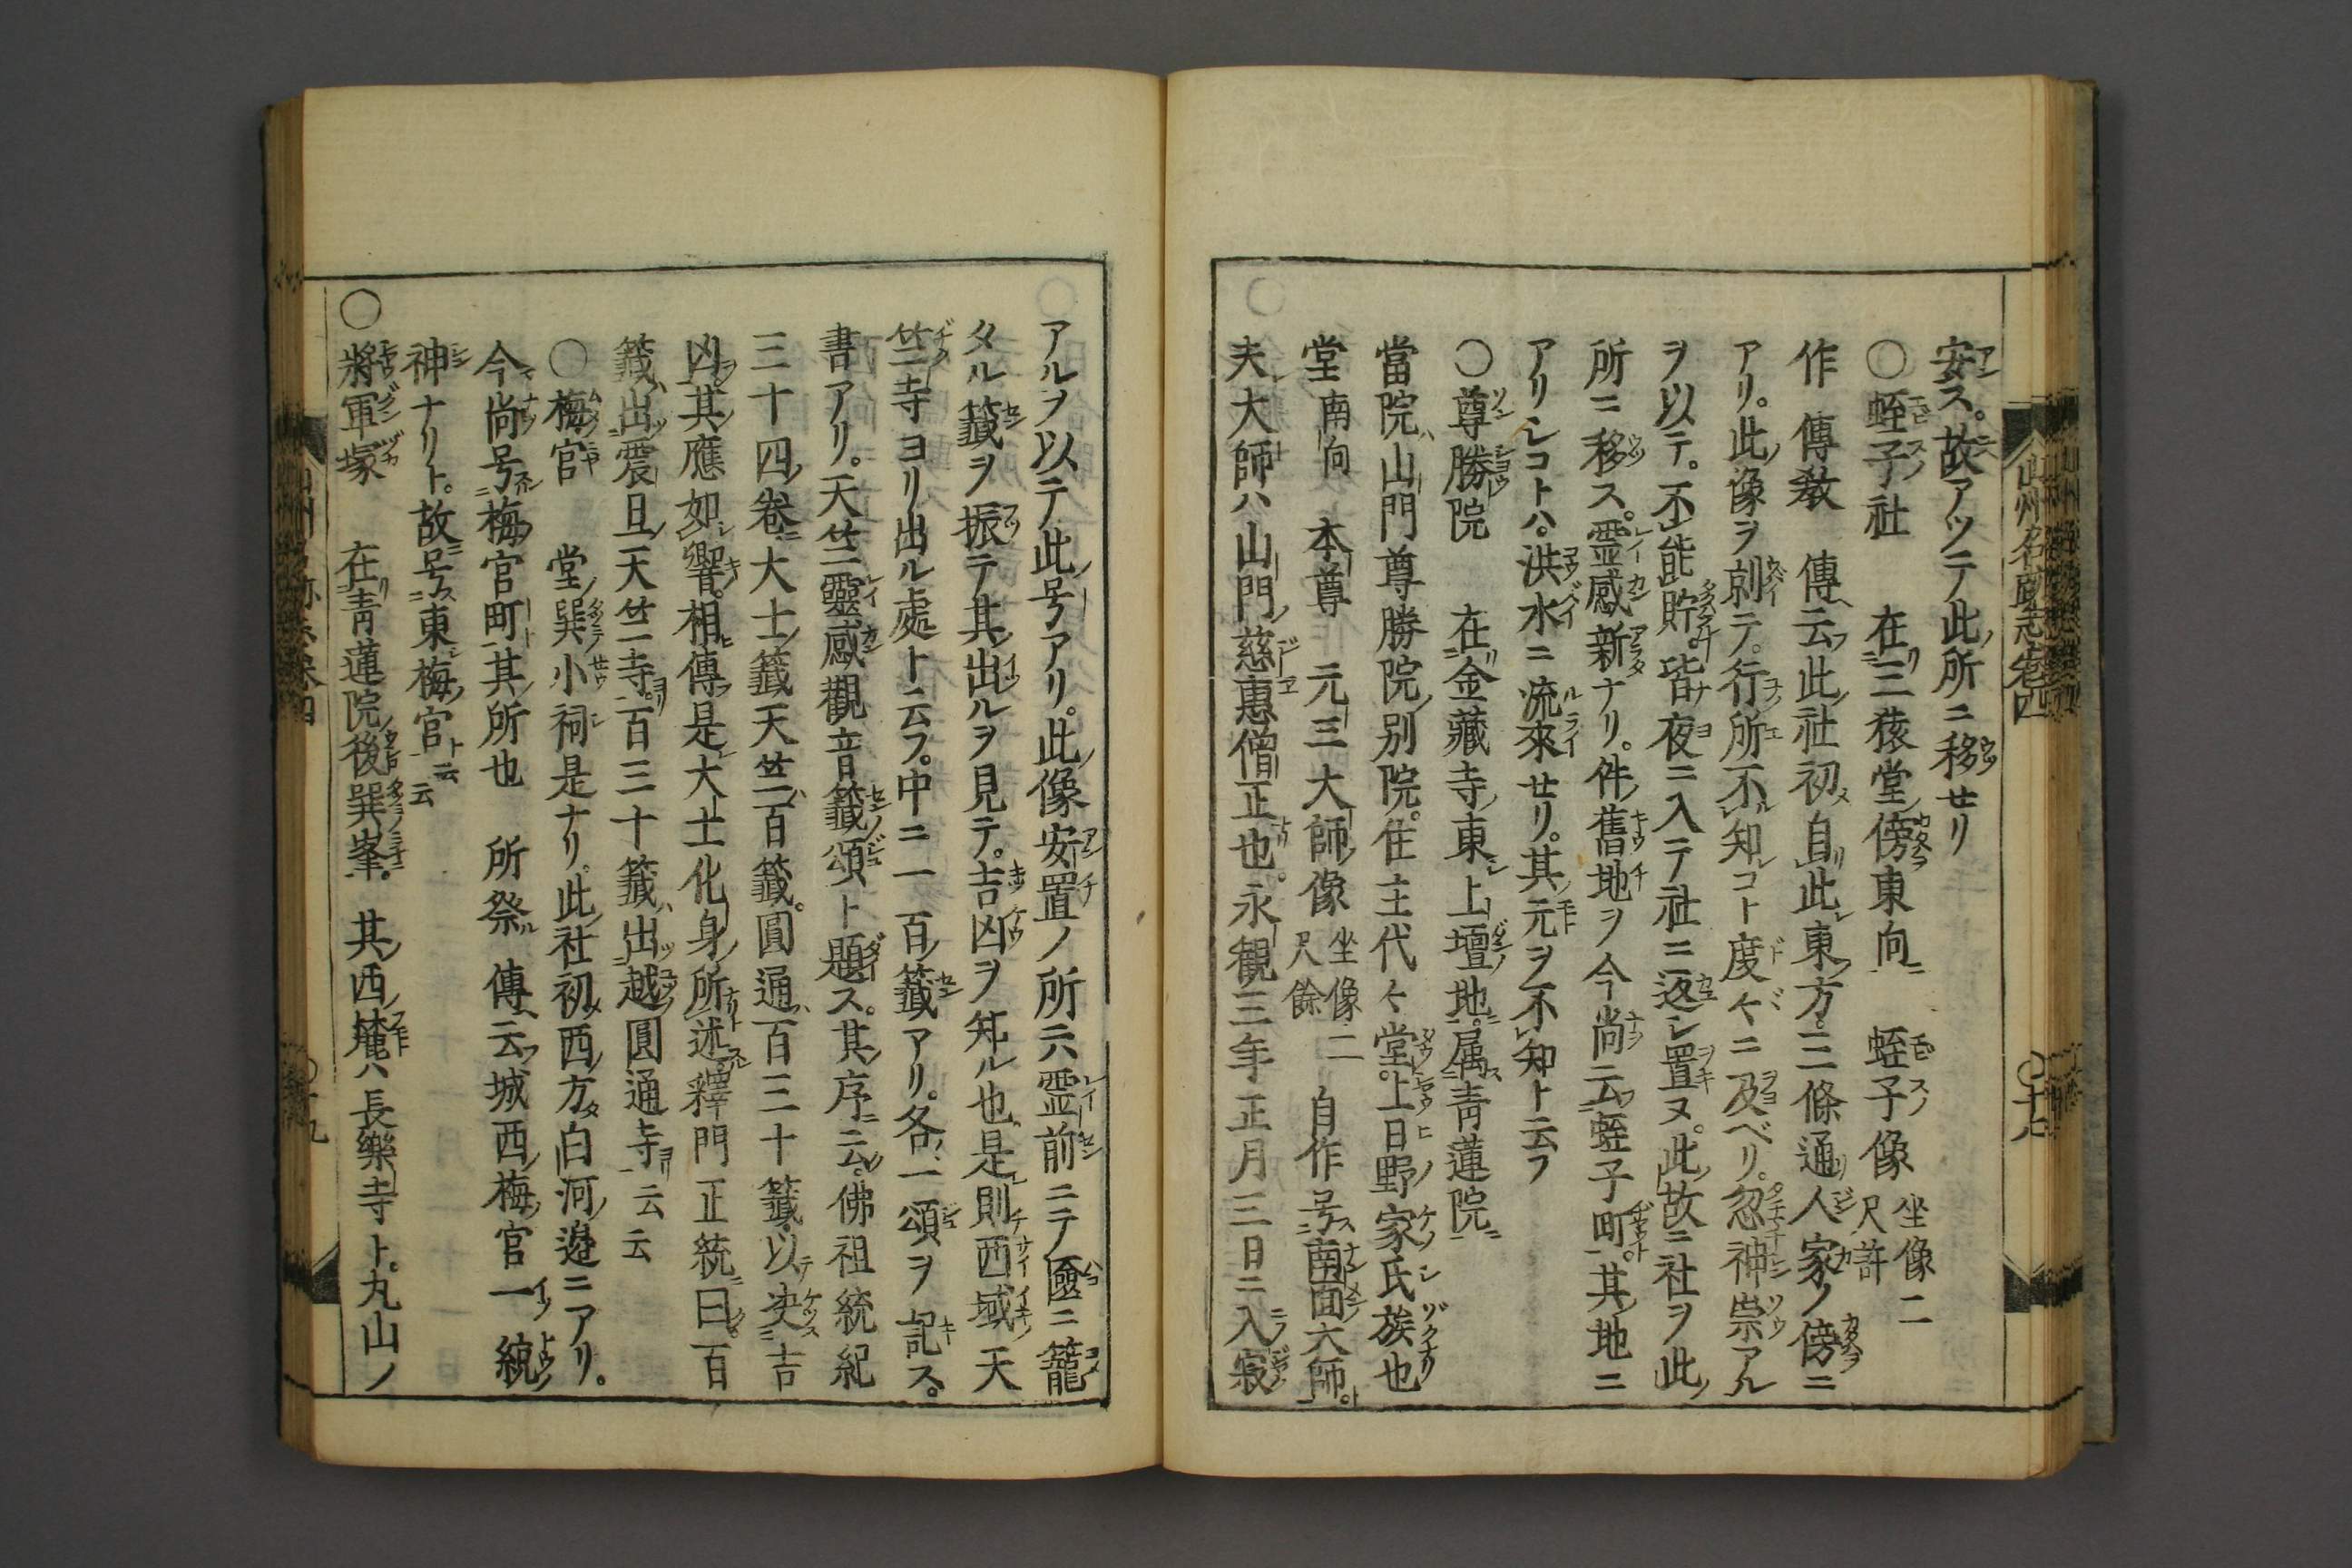 山州名跡志巻四
〇十八
安ス。故アツテ此所ニ移セリ
〇蛭子社 在三猿堂傍東向 蛭子像 坐像二尺許
作 傳教 傳云此社初メ自此東方。三條通人家ノ傍ニ
アリ。此像ヲ剥テ。行所不知コト度々ニ及ベリ。忽神祟アル
ヲ以テ。不能貯。皆夜ニ入テ社ニ返シ置ヌ。此故ニ社ヲ此
所ニ移ス。霊感新ナリ。件舊地ヲ今尚云蛭子町。其地ニ
アリシコトハ。洪水ニ流來セリ。其元ヲ不知ト云フ
〇尊勝院 在金藏寺東上壇地。属青蓮院
當院ハ山門尊勝院別院。住主代々堂上日野家氏族也
堂 南向 本尊 元三大師像 坐像二尺餘 自作 号南面大師。
夫大師ハ山門慈惠僧正也。永観三年正月三日ニ入寂
アルヲ以テ此号アリ。此像安置ノ所六霊前ニテ匳ニ籠
タル籤ヲ振テ其出ルヲ見テ。吉凶ヲ知ル也。是則西域天
竺寺ヨリ出ル處ト云フ。中ニ一百籤アリ。各一頌ヲ記ス。
書アリ。天竺靈感觀音籤頌ト題ス。其序ニ云。佛祖統紀
三十四卷大士籤天竺百籤。圓通百三十籤。以决吉
凶其應如響。相傳是大士化身所述。釋門正統曰百
籤出震旦天竺寺。百三十籤出越圓通寺云云
〇梅宮 堂巽小祠是ナリ。此社初西方白河邉ニアリ。
今尚号梅宮町其所也 所祭 傳云城西梅宮一統
神ナリト。故号東梅宮ト云云
〇將軍塚 在青蓮院後巽峯。 其西麓ハ長樂寺ト。丸山ノ